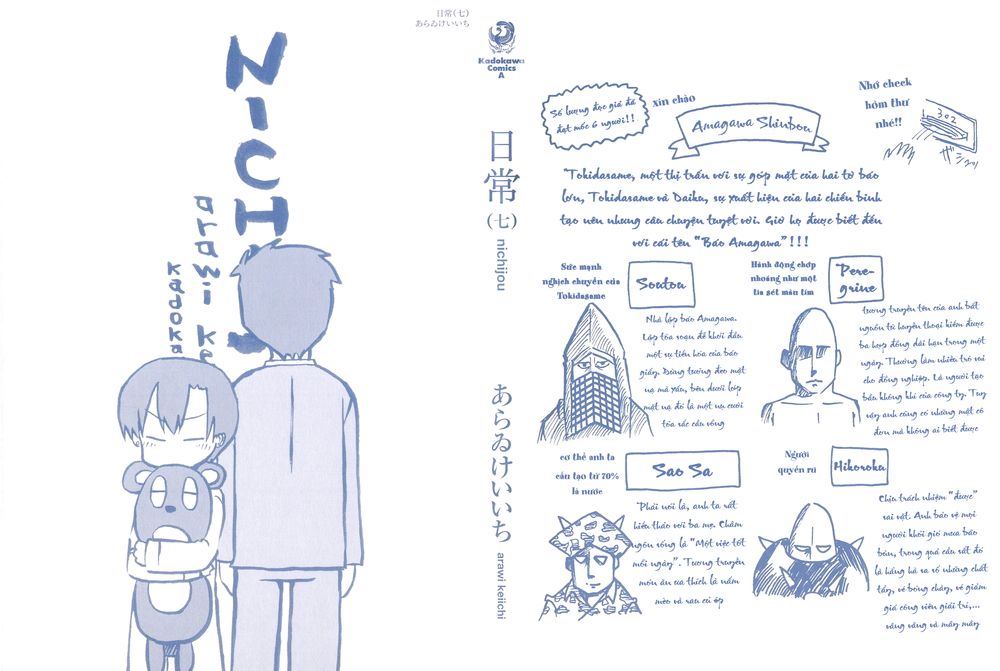 NICH
arawi ke
kadoka
日常(七)
あらゐけいいち
Kadokawa
Comics
A
日常
(七)
nichijou
あらゐけいいち
arawi keiichi
Số lượng đọc giả đã
đạt mốc 6 người!!
xin chào
Amagawa Shinbou
Nhớ check
hòm thư
nhé!!
302
"Tokidasame, một thị trấn với sự góp mặt của hai tờ báo
lớn, Tokidasame và Daiku, sự xuất hiện của hai chiến binh
tạo nên nhưng câu chuyện tuyệt vời. Giờ họ được biết đến
với cái tên "Báo Amagawa"!!!
Sức mạnh
nghịch chuyển của
Tokidasame
Soutou
Nhà lập báo Amagawa.
Lập tòa soạn để khởi đầu
một sự tiến hóa của báo
giấy. Đừng tưởng đeo mặt
nạ mà xấu, bên dưới lớp
mặt nạ đó là một nụ cười
tỏa sắc cầu vồng
Hành động chớp
nhoáng như một
tia sét màu tím
Pere-
grine
tương truyền tên của anh bắt
nguồn từ huyền thoại kiếm được
ba hợp đồng dài hạn trong một
ngày. Thường làm nhiều trò vui
cho đồng nghiệp. Là người tạo
bầu không khí của công ty. Tuy
vậy anh cũng có những mặt cô
đơn mà không ai biết được
cơ thể anh ta
cấu tạo từ 70%
là nước
Sao Sa
Phải nói là, anh ta rất
hiếu thảo với ba mẹ. Châm
ngôn sống là "Một việc tốt
mỗi ngày". Tương truyền
món ăn ưa thích là nấm
mèo và rau củ ép
Người
quyến rũ
Mikoroku
Chịu trách nhiệm "được"
sai vặt. Anh bảo vệ mọi
người khỏi gió mưa bão
bùn, trong quá cầu sắt đó
là hằng hà ra số những chất
tẩy, vé bóng chày, vé giảm
giá công viên giải trí,...
vâng vâng và mây mây